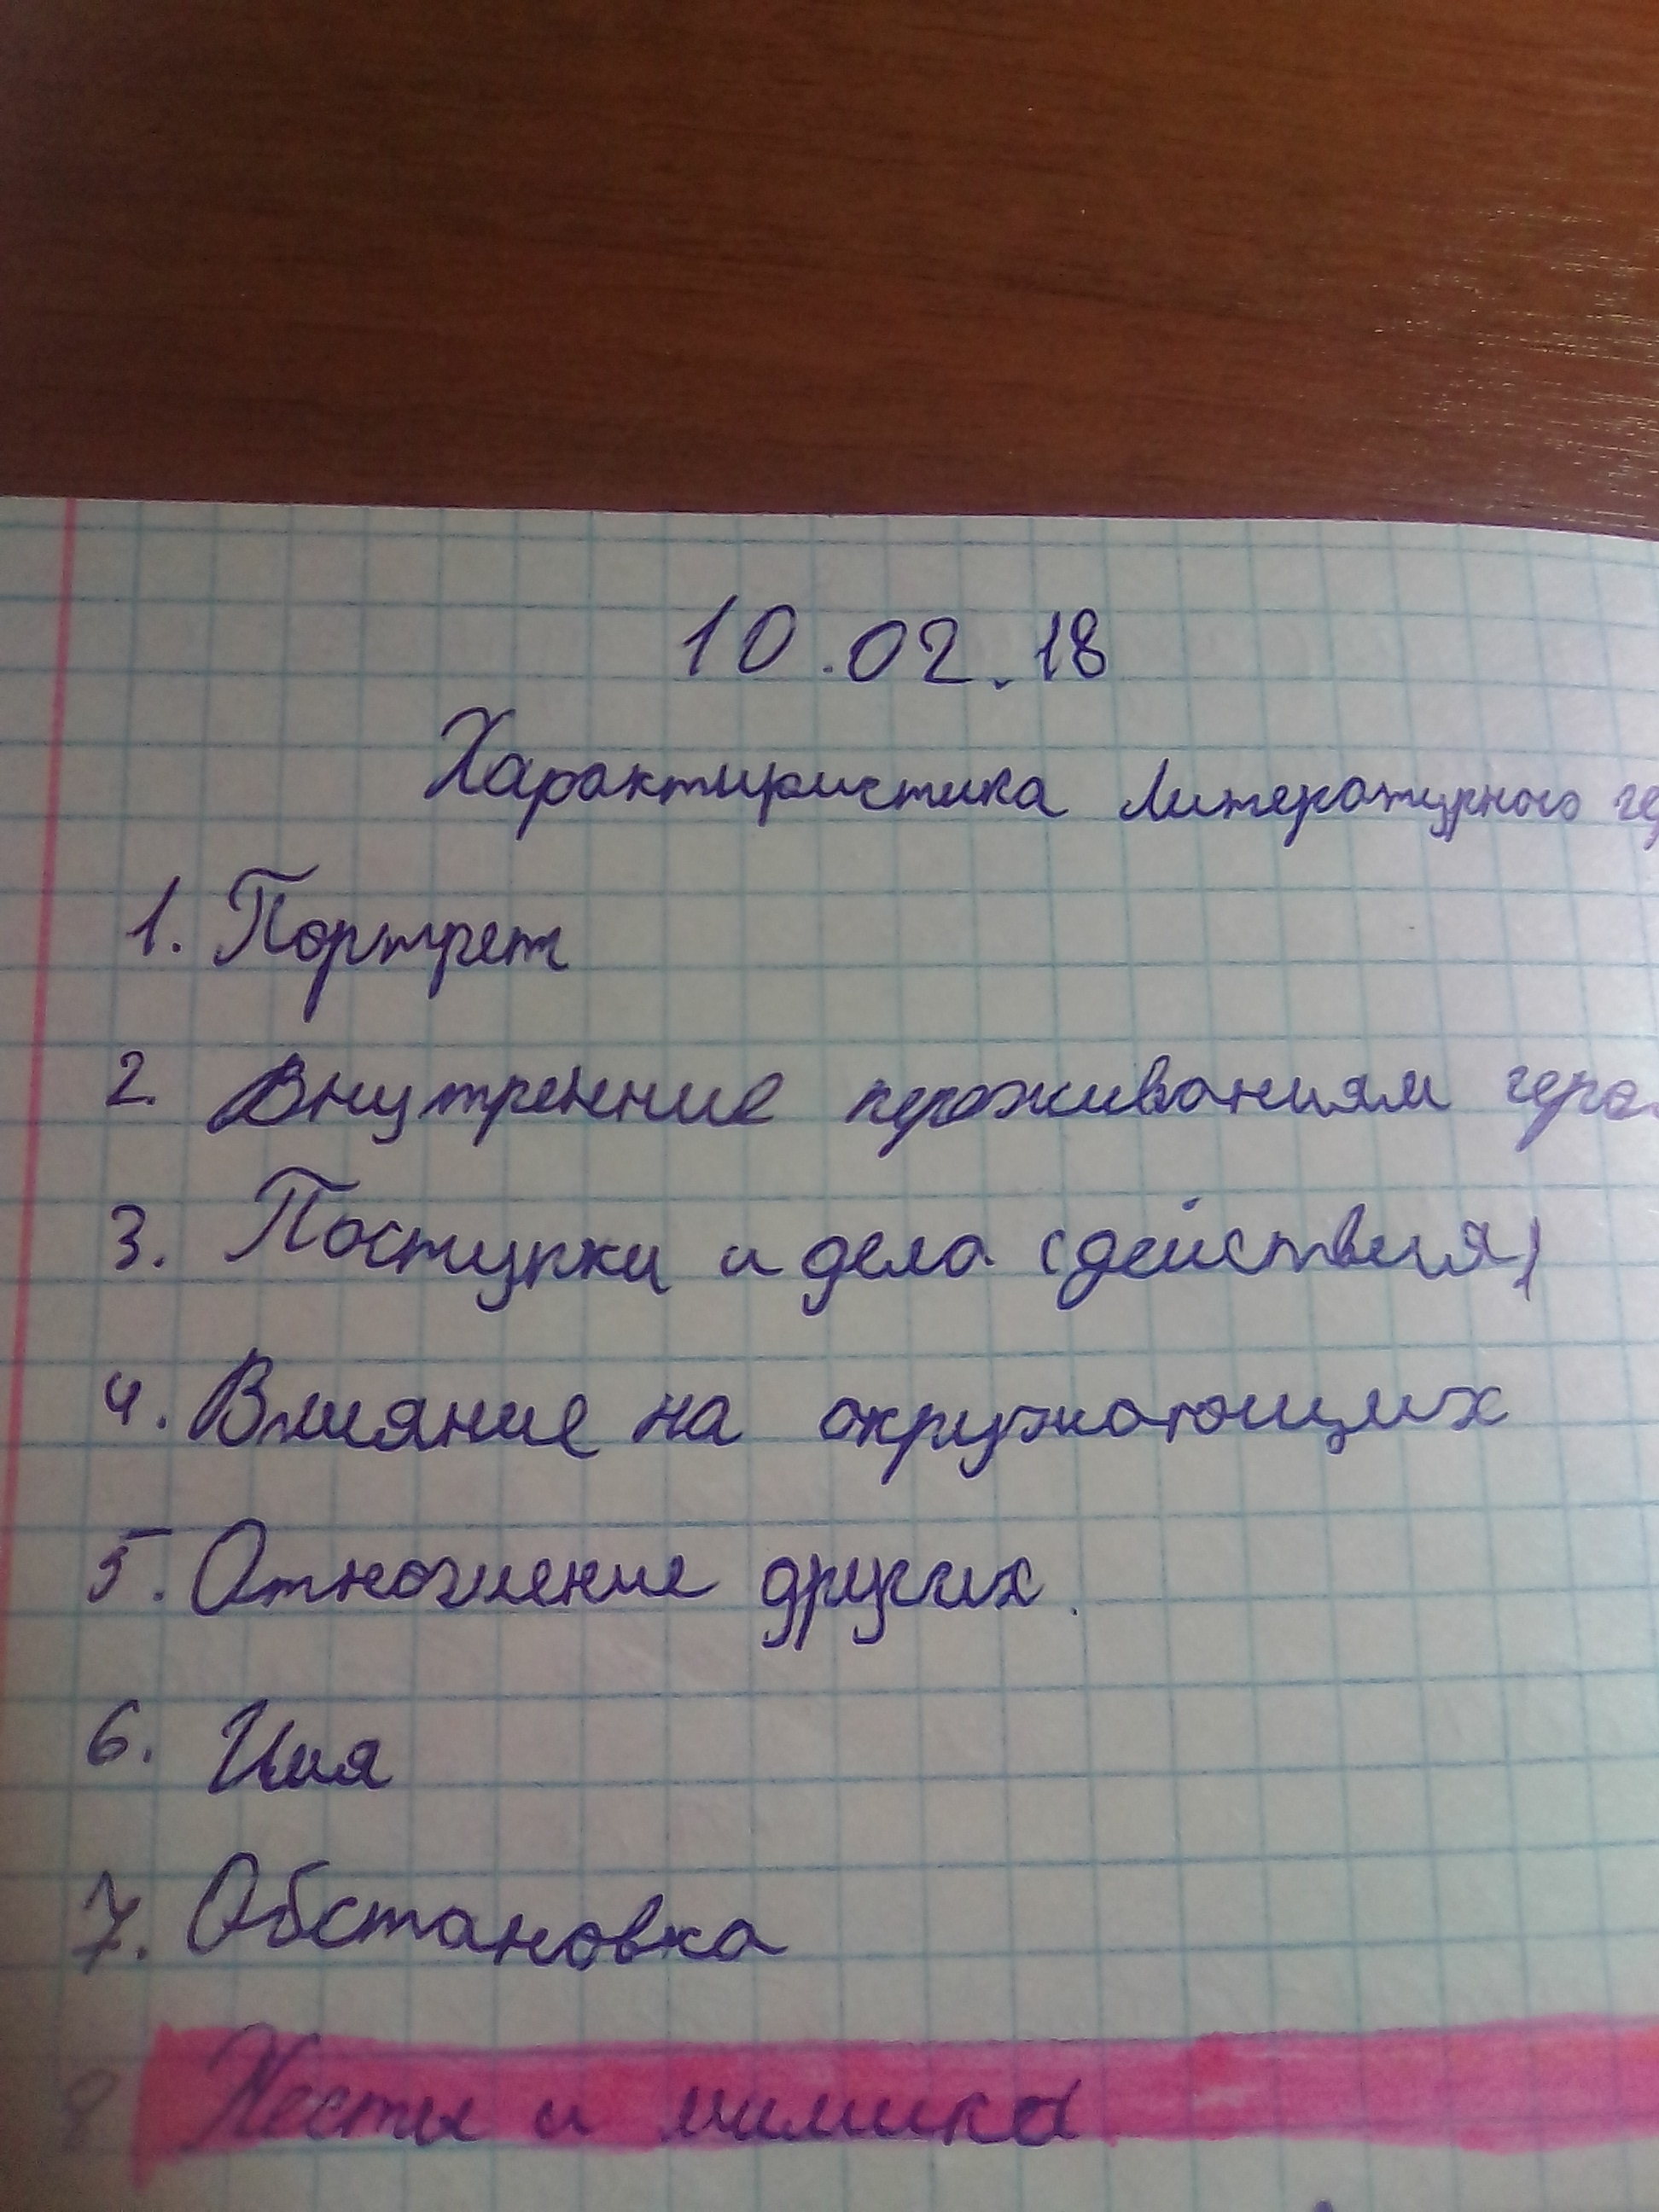 10.02.18
Характиристика литературного ге
1. Портрет
2. Внутренние переживаниям геро
3. Поступки и дела (действия)
4. Влияние на окружающих
5. Отношение других.
6. Имя
7. Обстановка
8 Жесты и мимика